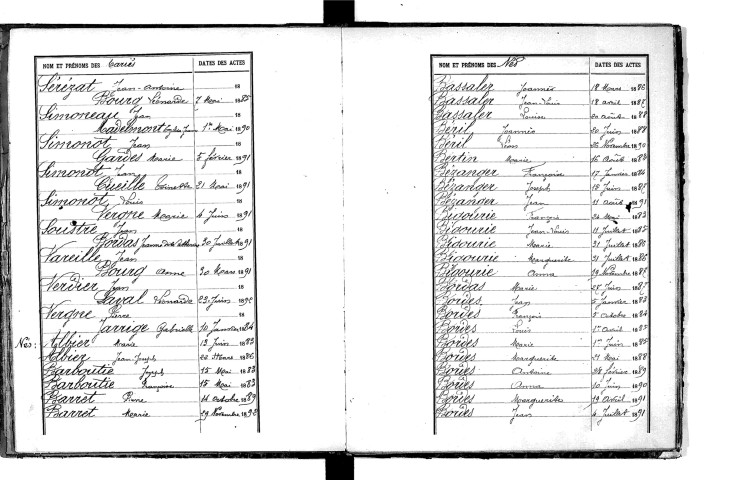 NOM ET PRÉNOMS DES Mariés DATES DES ACTES
Sérézat Jean-Antoine 18
Bourg Léonarde 7 Mai 1885
Simoneau Jean 18
Madelmont 1er Mai 1890
Simonot Jean 18
Gardes Marie 5 février 1891
Simonot Jean 18
Cueille Toinette 21 Mai 1891
Simonot Louis 18
Vergne Marie 4 Juin 1891
Soustre Jean 18
Bordas Jeanne 30 Juillet 1891
Vareille Jean 18
Bourg Anne 30 Mars 1891
Verdier Jean 18
Laval Léonarde 23 Juin 1892
Vergne Pierre
Jarrige Gabrielle 30 Janvier 1884
Nés: Albier Marie 13 Juin 1883
Albier Jean Joseph 22 Mars 1886
Barboutie Joseph 15 Mai 1883
Barboutie Françoise 15 Mai 1883
Barret Pierre 14 octobre 1889
Barret Marie 19 Novembre 1892
NOM ET PRÉNOMS DES Nés DATES DES ACTES
Bassaler Joannès 18 Mars 1886
Bassaler Jean Louis 18 avril 1887
Bassaler Louise 20 août 1888
Béril Joannès 20 Juin 1888
Béril Léon 26 Novembre 1890
Bertin Marie 16 Août 1884
Bézanger Françoise 17 Janvier 1886
Bézanger Joseph 18 Juin 1887
Bézanger Jean 11 août 1891
Bigourie François 24 Mai 1883
Bigourie Jean Louis 11 Juillet 1885
Bigourie Marie 31 Juillet 1886
Bigourie Marguerite 31 Juillet 1886
Bigourie Anna 19 Novembre 1887
Bordas Marie 28 Juin 1887
Bordes Jean 5 Janvier 1883
Bordes François 5 octobre 1884
Bordes Louis 1er avril 1885
Bordes Marie 1er Juin 1885
Bordes Marguerite 21 Mai 1888
Bordes Antoine 28 février 1889
Bordes Anna 10 Juin 1890
Bordes Marguerite 19 Avril 1891
Bordes Jean 4 Juillet 1891